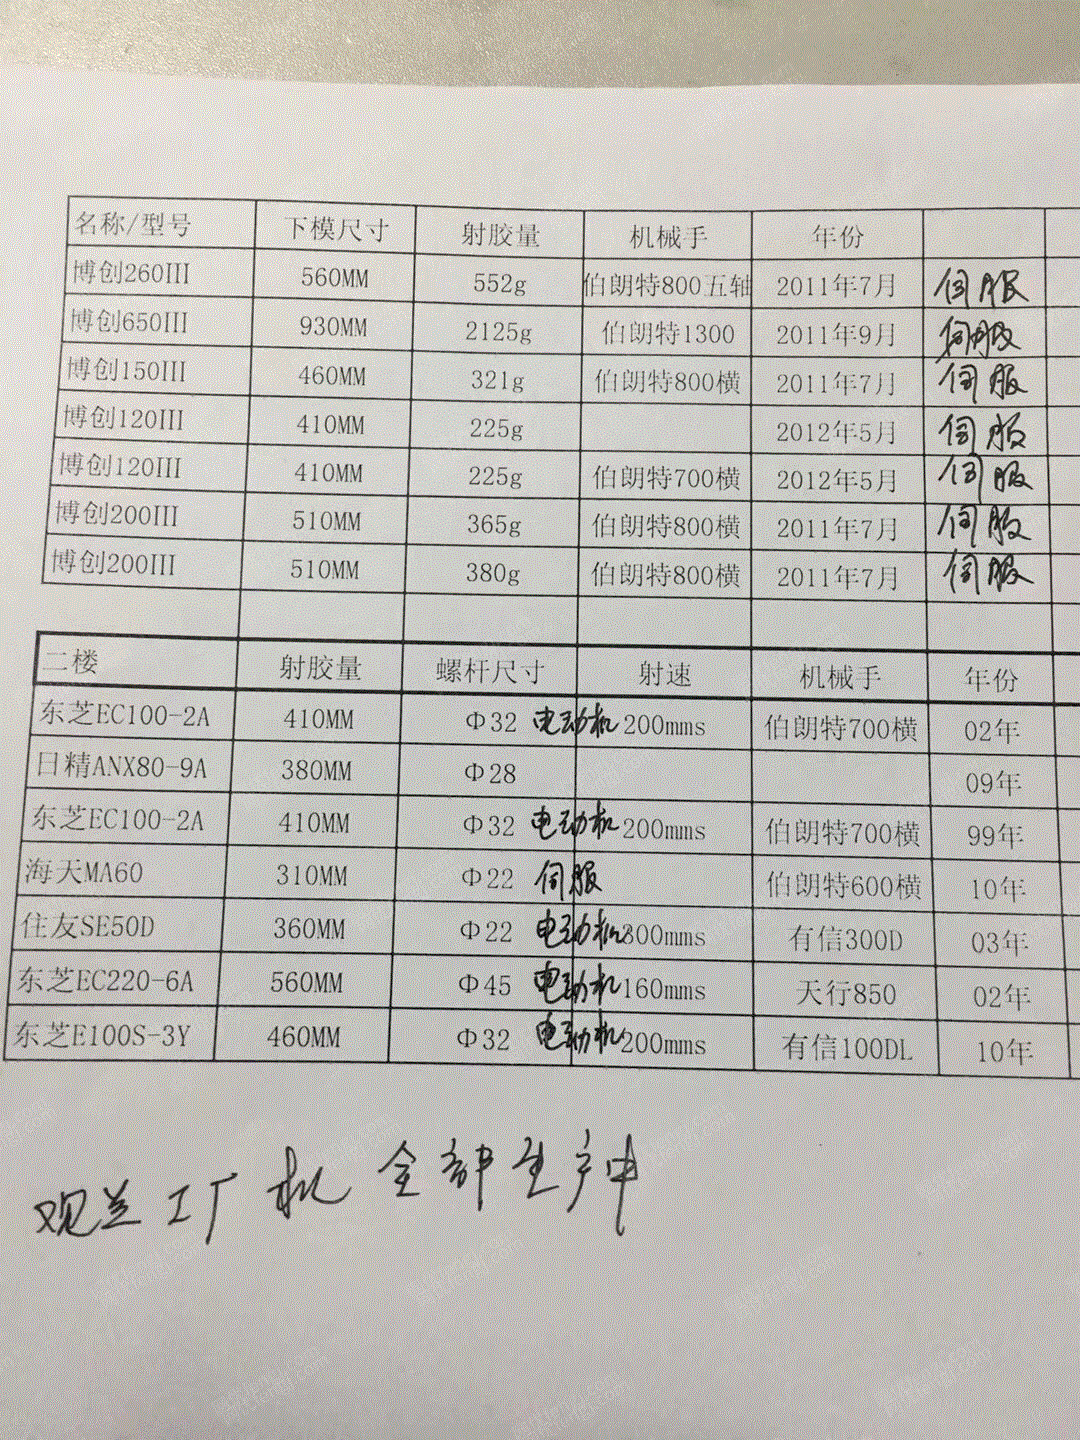 名称/型号 下模尺寸 射胶量 机械手 年份
博创260III 560MM 552g 伯朗特800五轴 2011年7月 伺服
博创650III 930MM 2125g 伯朗特1300 2011年9月 伺服
博创150III 460MM 321g 伯朗特800横 2011年7月 伺服
博创120III 410MM 225g 2012年5月 伺服
博创120III 410MM 225g 伯朗特700横 2012年5月 伺服
博创200III 510MM 365g 伯朗特800横 2011年7月 伺服
博创200III 510MM 380g 伯朗特800横 2011年7月 伺服
二楼 射胶量 螺杆尺寸 射速 机械手 年份
东芝EC100-2A 410MM Φ32 电动机 200mms 伯朗特700横 02年
日精ANX80-9A 380MM Φ28 09年
东芝EC100-2A 410MM Φ32 电动机 200mms 伯朗特700横 99年
海天MA60 310MM Φ22 伺服 伯朗特600横 10年
住友SE50D 360MM Φ22 电动机 300mms 有信300D 03年
东芝EC220-6A 560MM Φ45 电动机 160mms 天行850 02年
东芝E100S-3Y 460MM Φ32 电动机 200mms 有信100DL 10年
观兰工厂机全部生产中